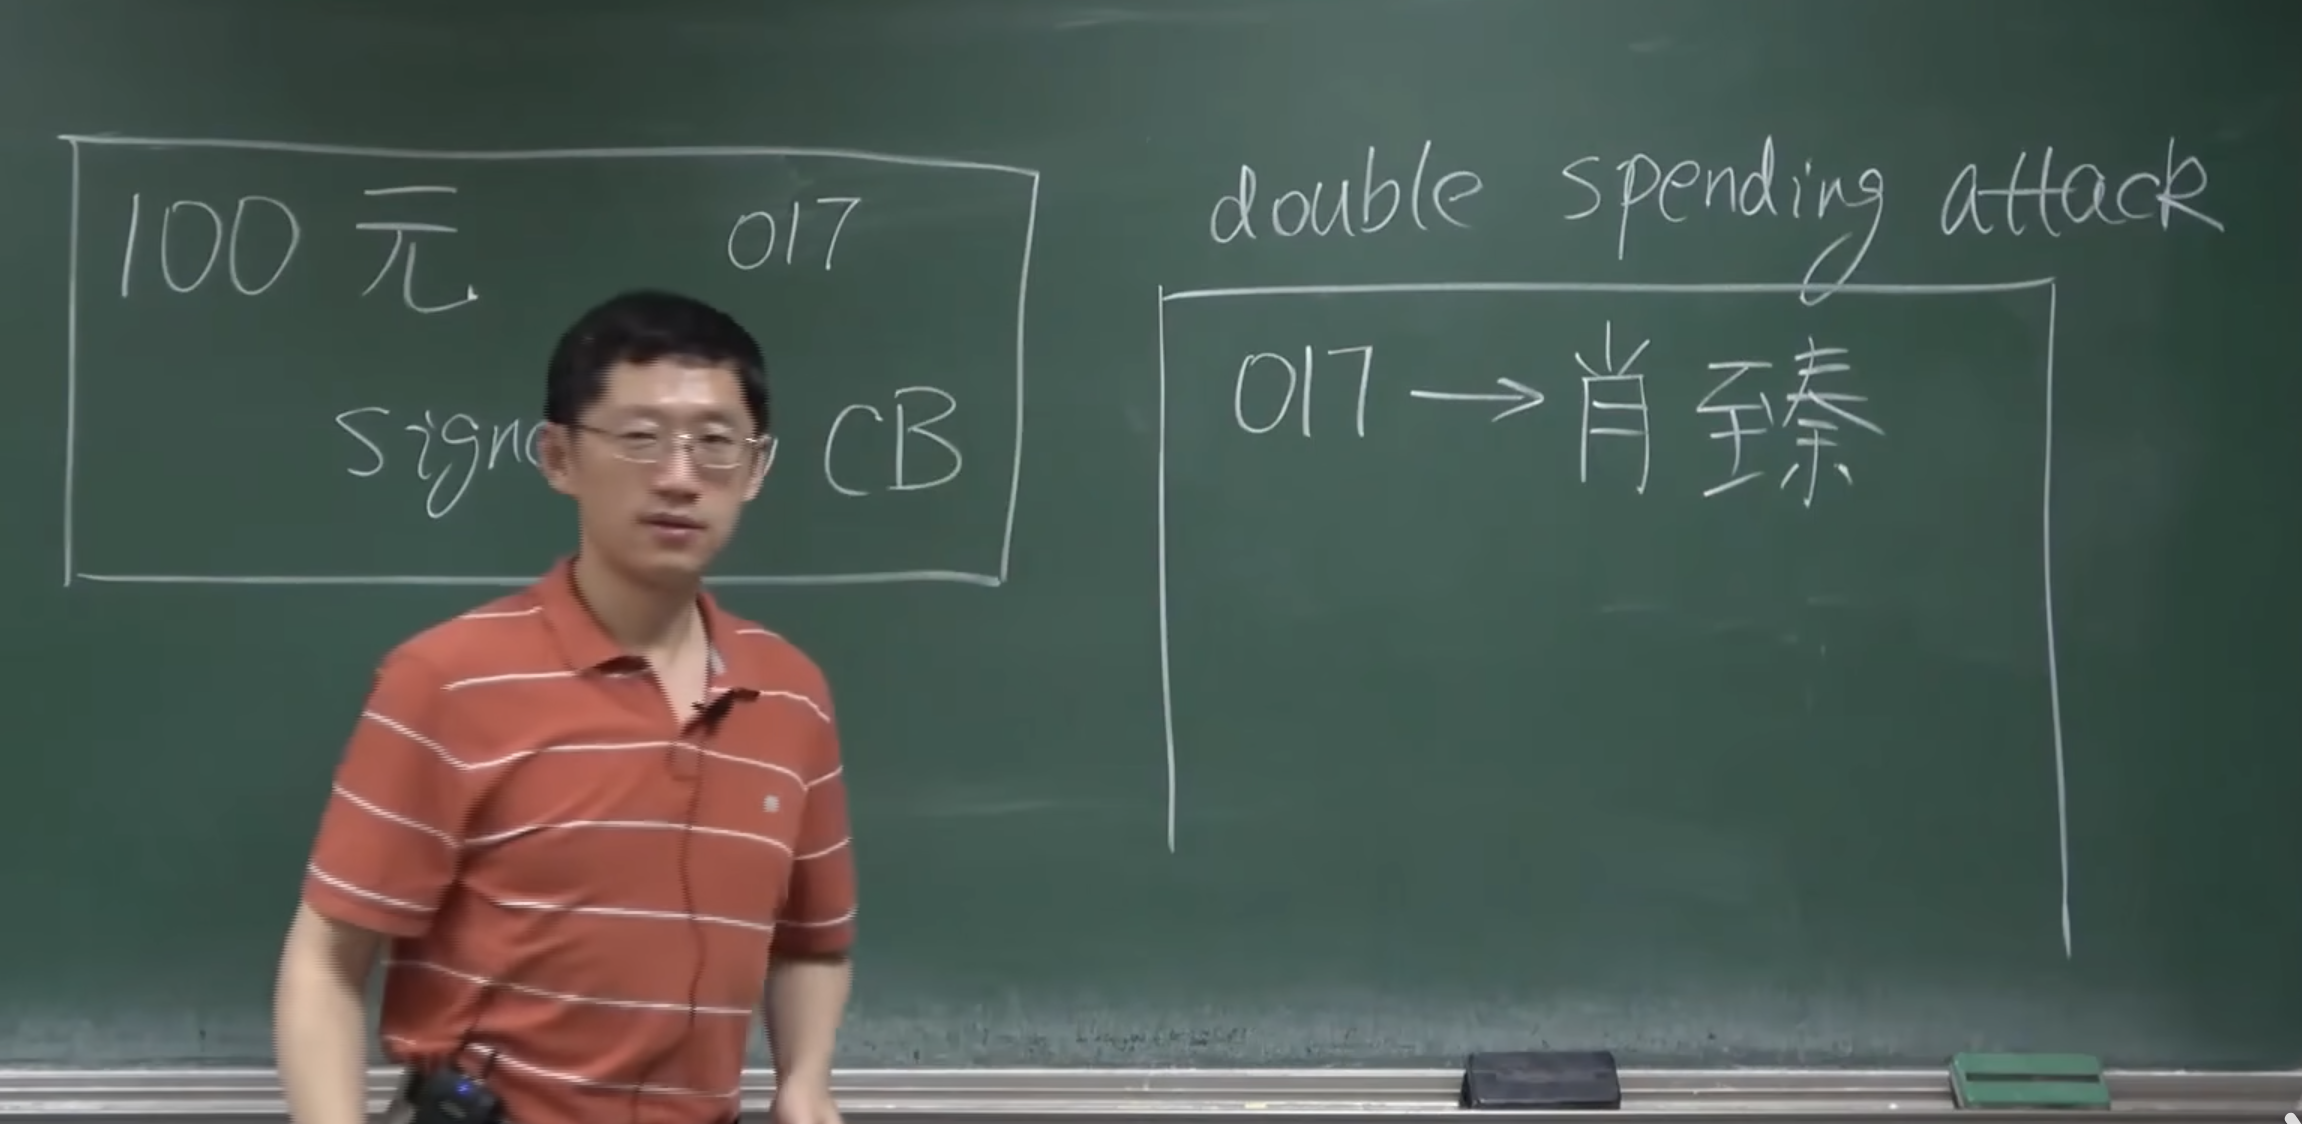 100 元 017
CB
double spending attack
017 → 肖 臻